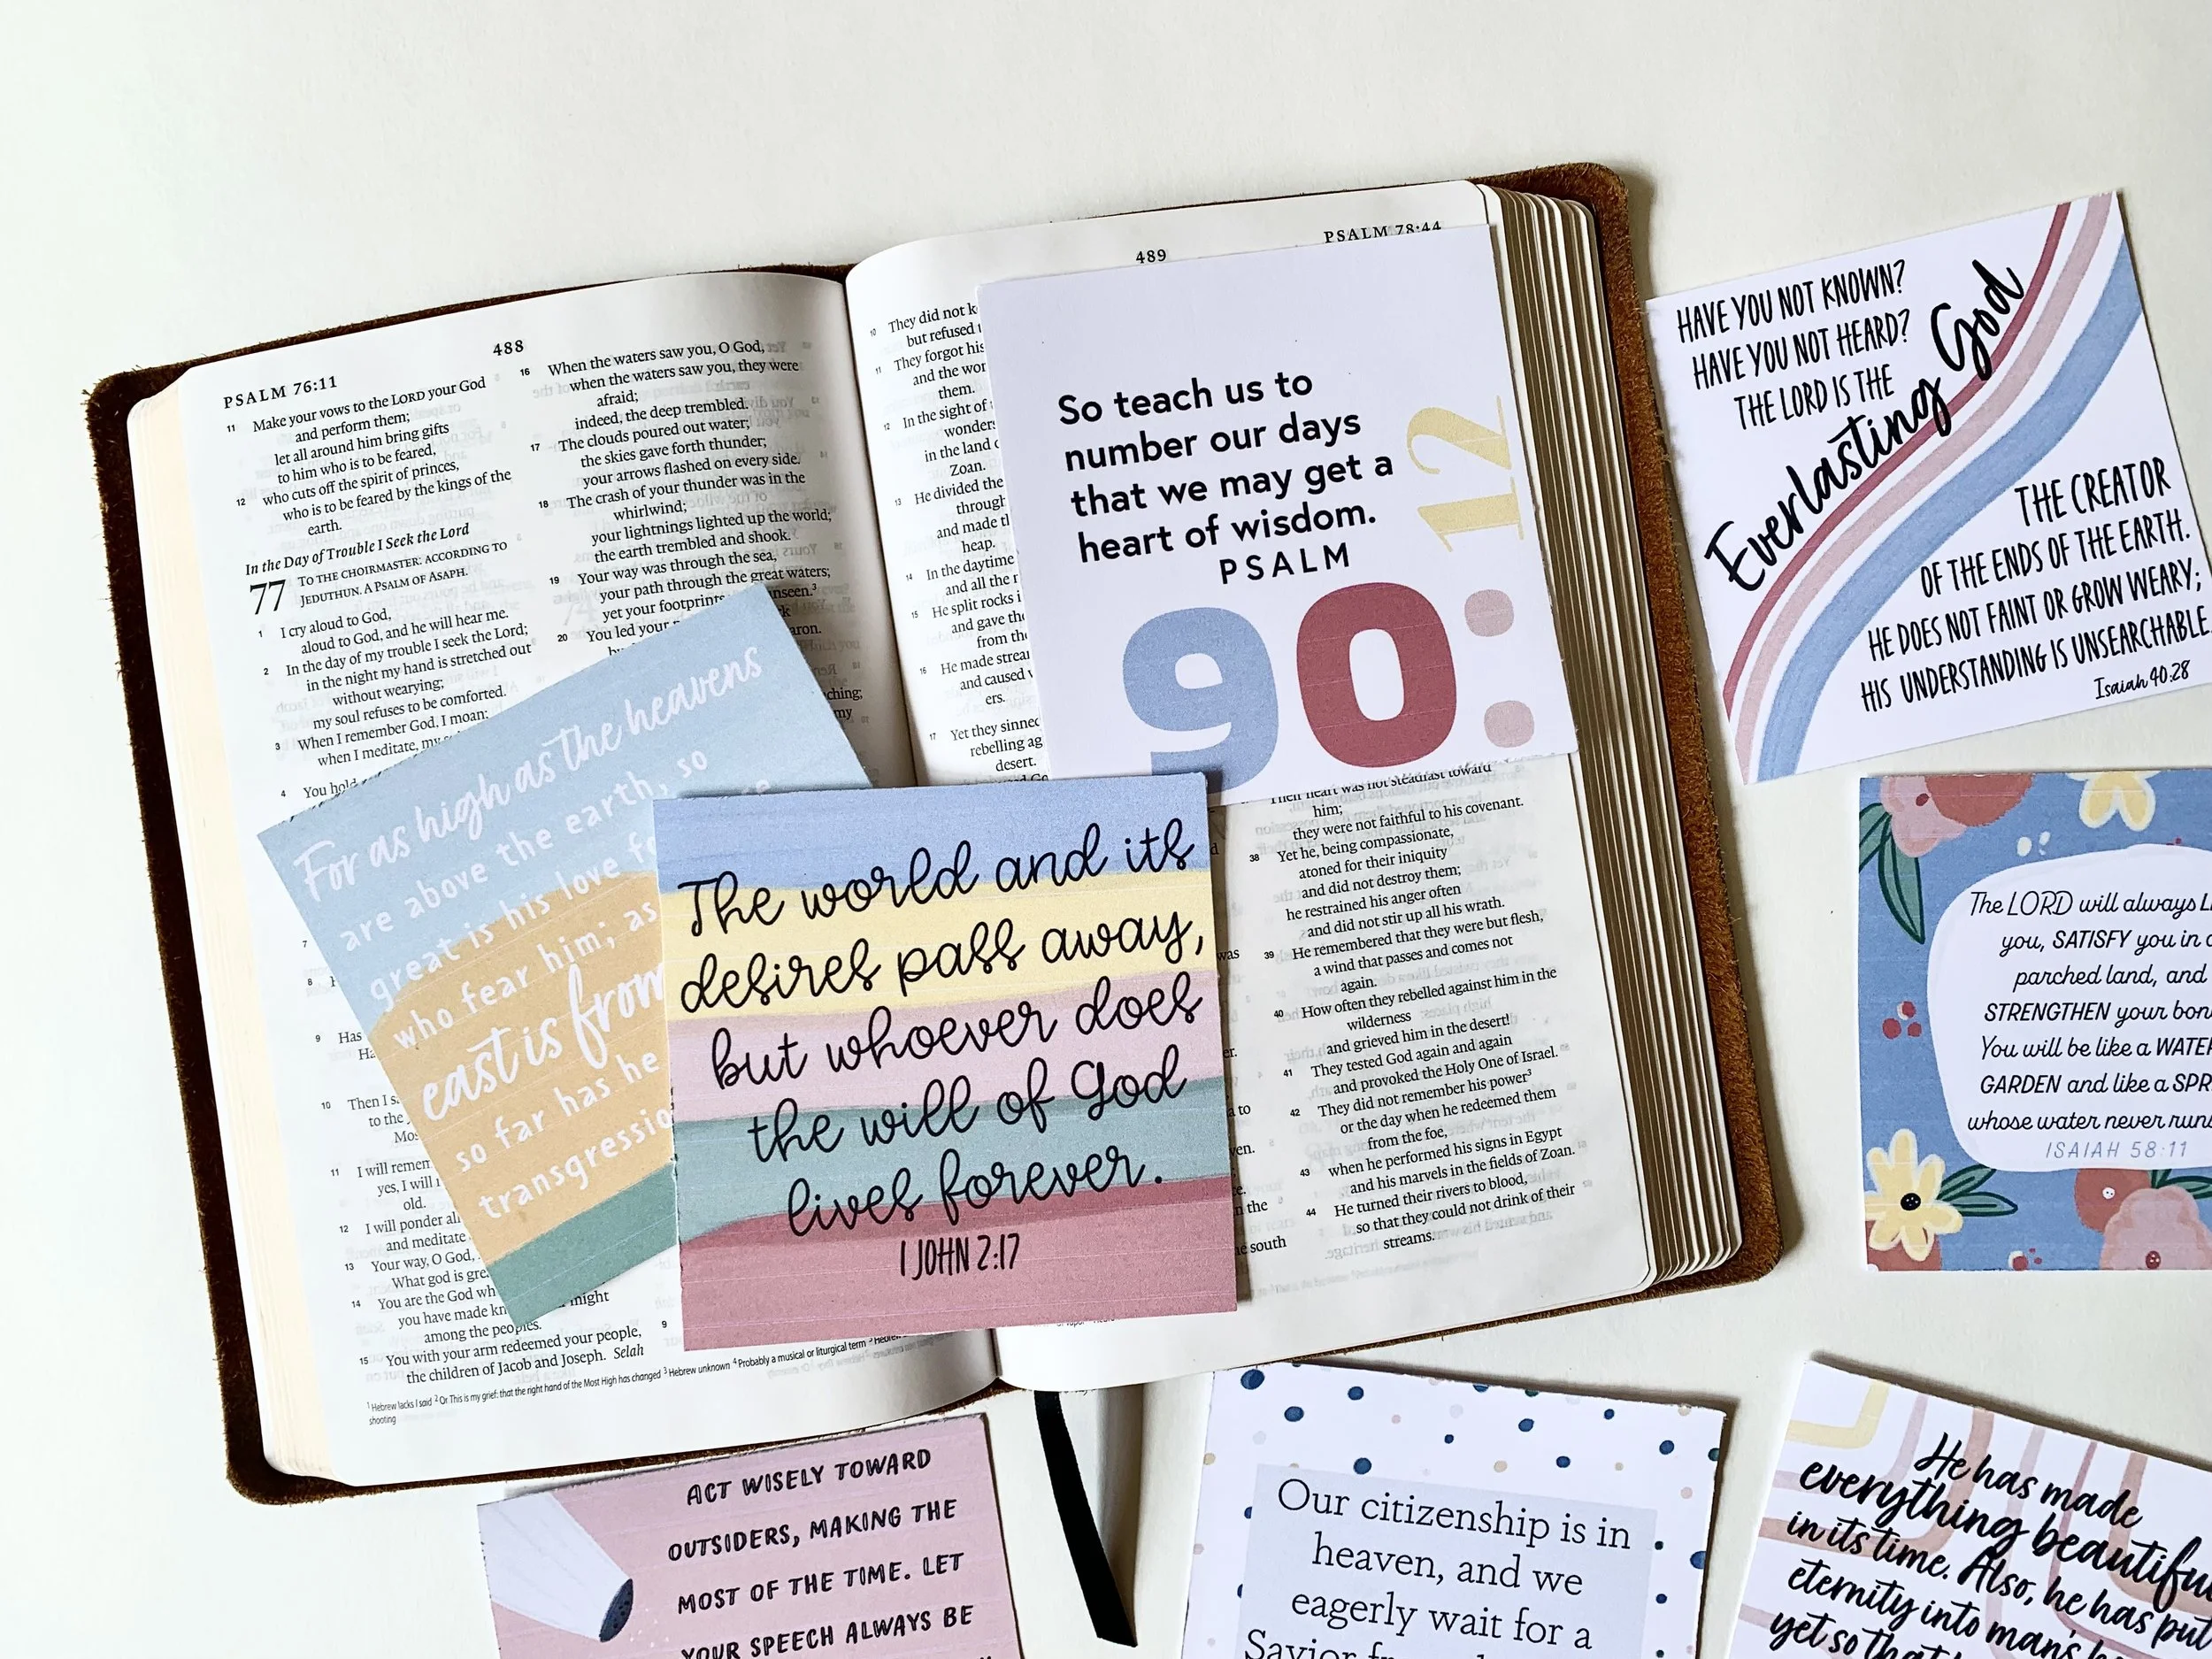 PSALM 76:11
488
11 Make your vows to the LORD your God
and perform them;
let all around him bring gifts
to him who is to be feared,
12 who cuts off the spirit of princes,
who is to be feared by the kings of the
earth.
In the Day of Trouble I Seek the Lord
77 TO THE CHOIRMASTER: ACCORDING TO
JEDUTHUN. A PSALM OF ASAPH.
1 I cry aloud to God,
aloud to God, and he will hear me.
2 In the day of my trouble I seek the Lord;
in the night my hand is stretched out
without wearying;
my soul refuses to be comforted.
3 When I remember God, I moan;
when I meditate, my
4 You hold
7
8
9 Has
Ha
10 Then I s
to the
Mos
11 I will remem
yes, I will
old.
12 I will ponder all
and meditate
13 Your way, O God,
What god is gre
14 You are the God wh
might
you have made kn
among the peoples.
15 You with your arm redeemed your people,
the children of Jacob and Joseph. Selah
16 When the waters saw you, O God,
when the waters saw you, they were
afraid;
indeed, the deep trembled.
17 The clouds poured out water;
the skies gave forth thunder;
your arrows flashed on every side.
18 The crash of your thunder was in the
whirlwind;
your lightnings lighted up the world;
the earth trembled and shook.
19 Your way was through the sea,
your path through the great waters;
yet your footprints unseen.3
20 You led your
aron.
ching;
my
9
1 Hebrew lacks I said 2 Or This is my grief: that the right hand of the Most High has changed 3 Hebrew unknown 4 Probably a musical or liturgical term 5 Hebrew
shooting
489
PSALM 78:44
10 They did not k
but refused
11 They forgot his
and the wor
them.
12 In the sight of
wonders
in the land
Zoan.
13 He divided the
through
and made th
heap.
14 In the daytime
and all the n
15 He split rocks i
and gave the
from the
16 He made strea
and caused
ers.
17 Yet they sinne
rebelling ag
desert.
Their heart was not steadfast toward
him;
they were not faithful to his covenant.
38 Yet he, being compassionate,
atoned for their iniquity
and did not destroy them;
he restrained his anger often
and did not stir up all his wrath.
39 He remembered that they were but flesh,
a wind that passes and comes not
again.
40 How often they rebelled against him in the
wilderness
and grieved him in the desert!
41 They tested God again and again
and provoked the Holy One of Israel.
42 They did not remember his power3
or the day when he redeemed them
from the foe,
43 when he performed his signs in Egypt
and his marvels in the fields of Zoan.
44 He turned their rivers to blood,
so that they could not drink of their
streams.
was
er.
to
ven.
n the
south
So teach us to
number our days
that we may get a
heart of wisdom.
PSALM
90:12
For as high as the heavens
are above the earth, so
great is his love fo
who fear him; as
east is from
so far has he
transgressio
The world and its
desires pass away,
but whoever does
the will of God
lives forever.
1 JOHN 2:17
HAVE YOU NOT KNOWN?
HAVE YOU NOT HEARD?
THE LORD IS THE
Everlasting God
THE CREATOR
OF THE ENDS OF THE EARTH.
HE DOES NOT FAINT OR GROW WEARY;
HIS UNDERSTANDING IS UNSEARCHABLE.
Isaiah 40:28
The LORD will always L
you, SATISFY you in a
parched land, and
STRENGTHEN your bon
You will be like a WATE
GARDEN and like a SPR
whose water never runs
ISAIAH 58:11
ACT WISELY TOWARD
OUTSIDERS, MAKING THE
MOST OF THE TIME. LET
YOUR SPEECH ALWAYS BE
Our citizenship is in
heaven, and we
eagerly wait for a
Savior
He has made
everything beautiful
in its time. Also, he has put
eternity into man's
yet so that